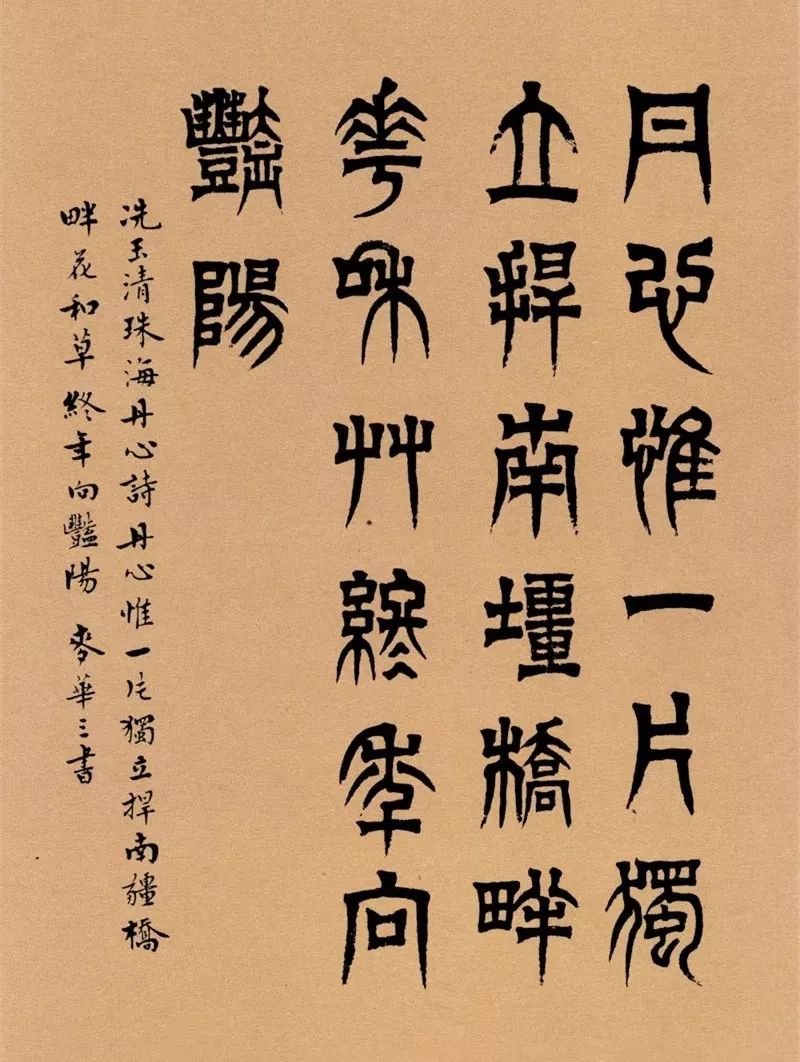 丹心惟一片獨
立捍南壃橋畔
花和艸終年向
豔陽
冼玉清珠海丹心詩丹心惟一片獨立捍南疆橋
畔花和草終年向豔陽 麥華三書